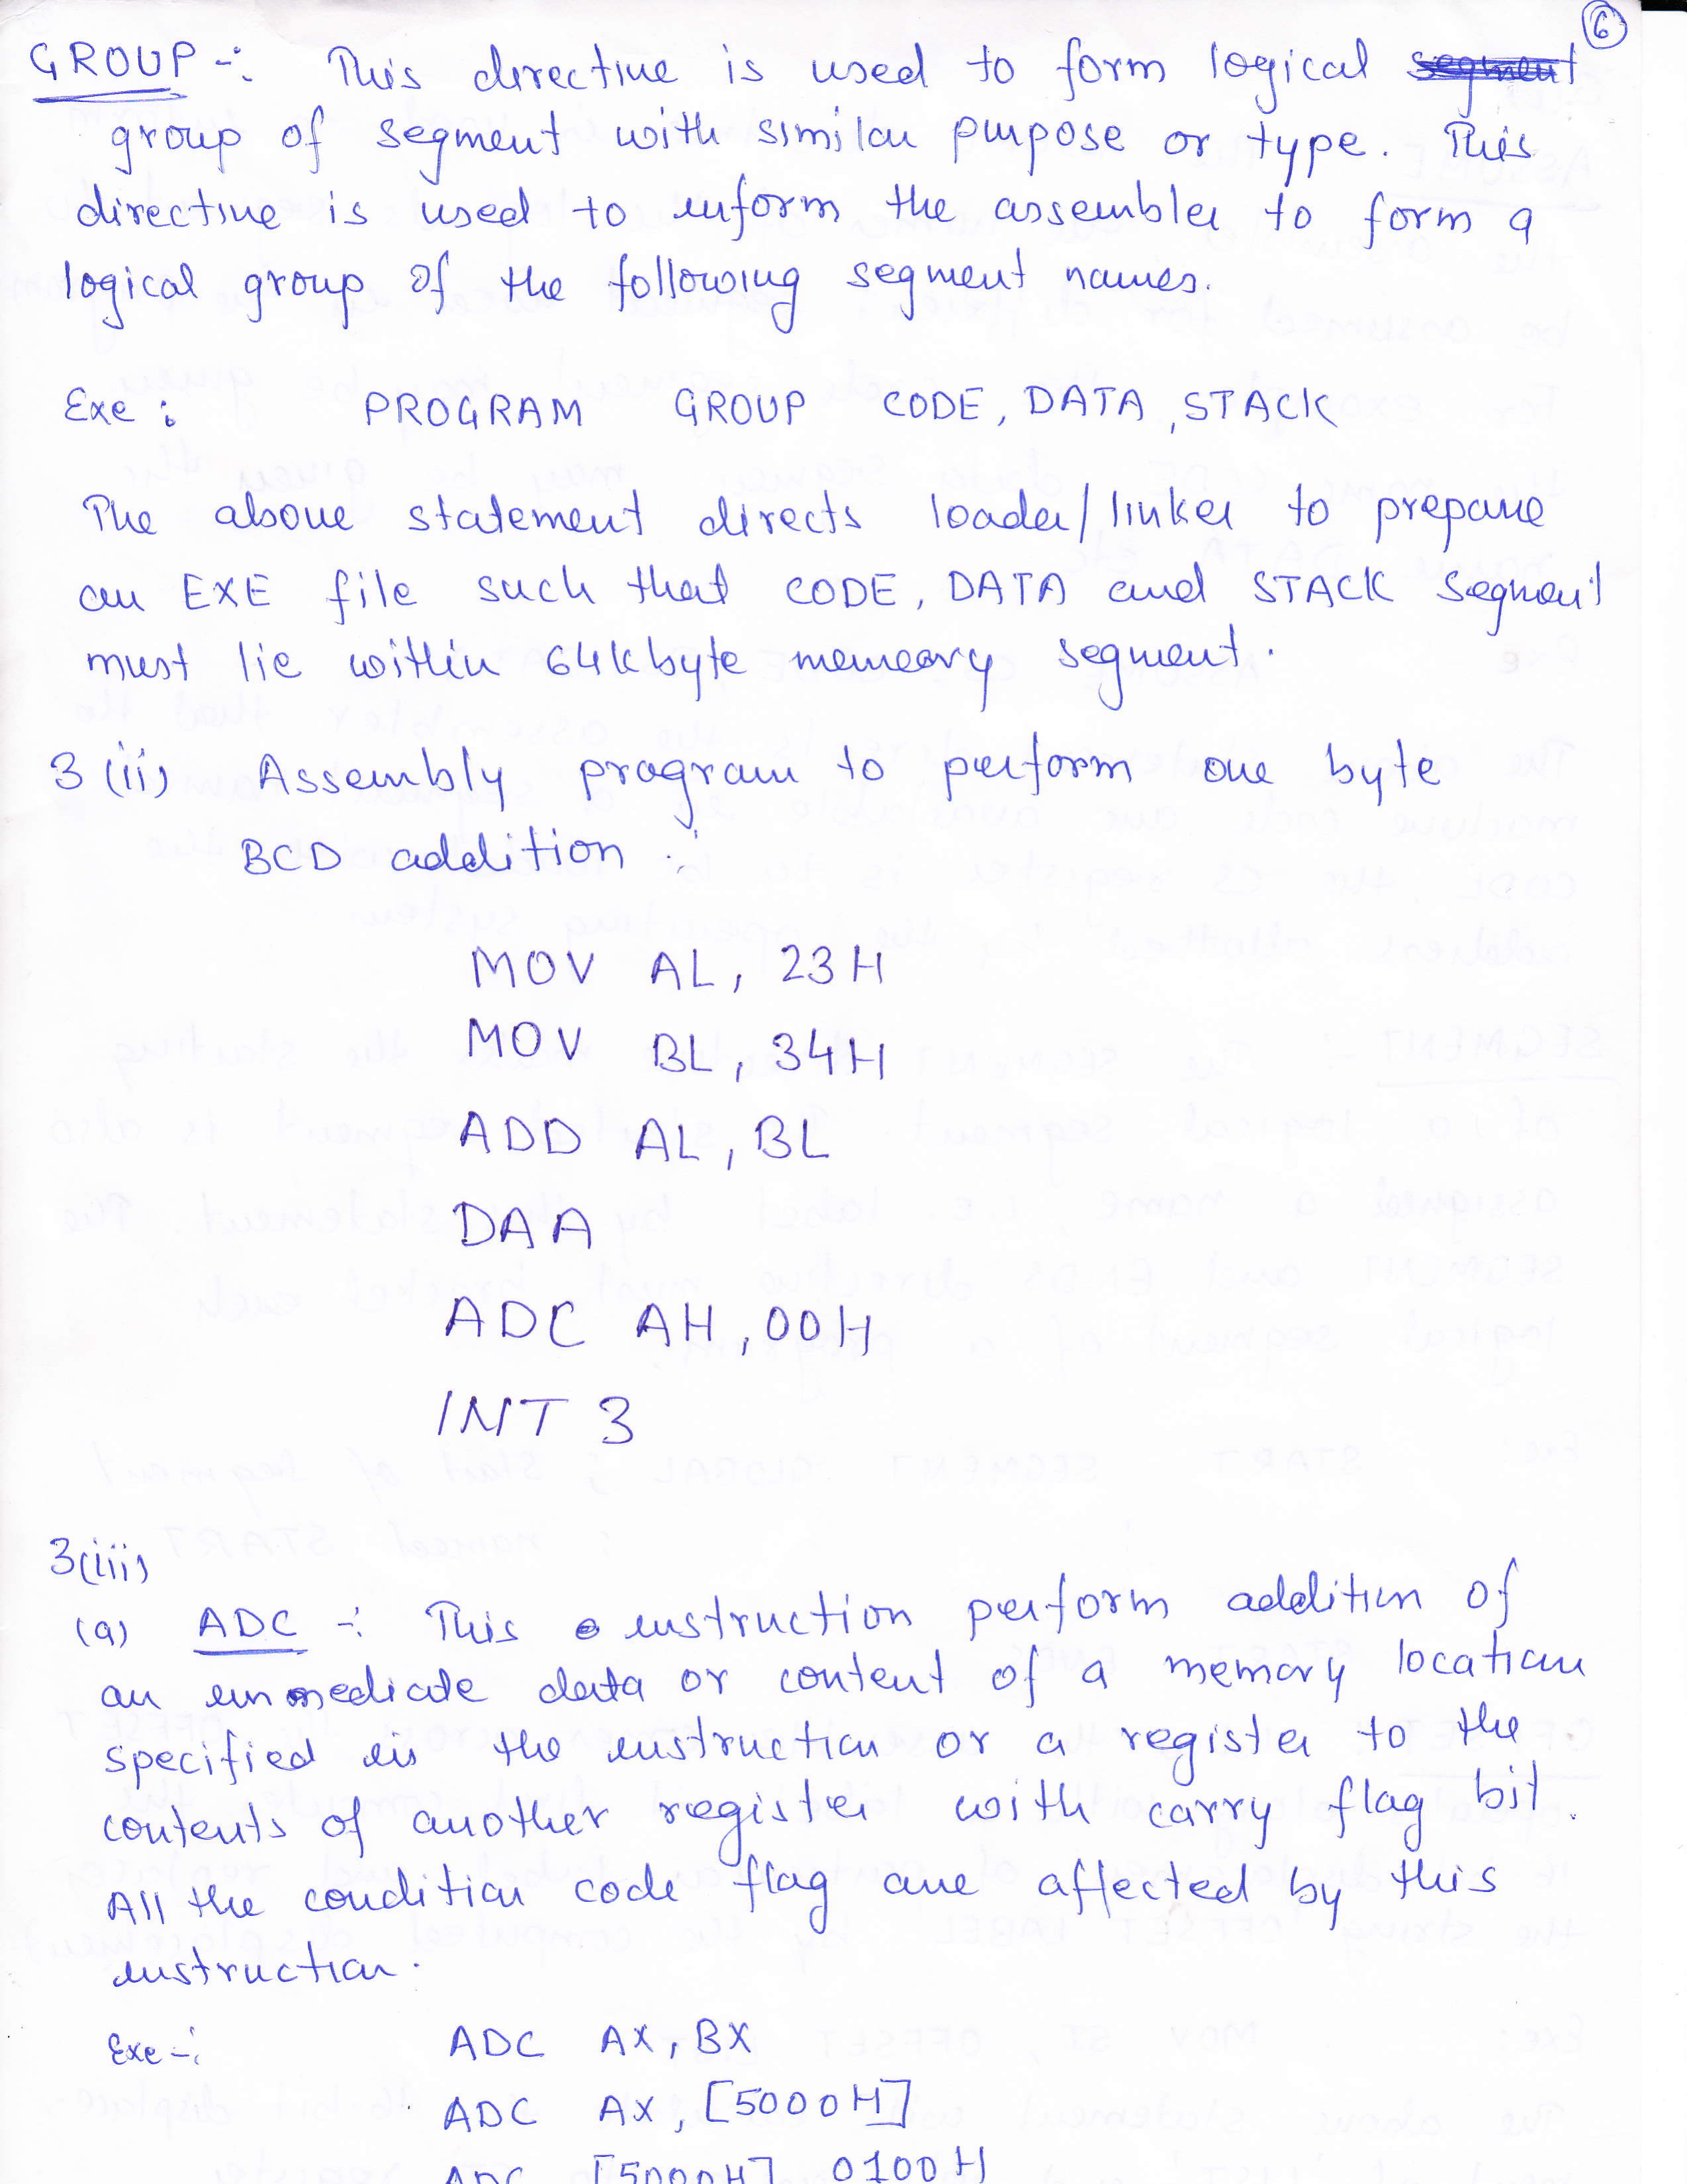 6
GROUP -: This directive is used to form logical segment
group of segment with similar purpose or type. This
directive is used to inform the assembler to form a
logical group of the following segment names.
Exe : PROGRAM GROUP CODE, DATA, STACK
The above statement directs loader/linker to prepare
an EXE file such that CODE, DATA and STACK segment
must lie within 64kbyte memeory segment.
3 (ii) Assembly program to perform one byte
BCD addition :
MOV AL, 23H
MOV BL, 34H
ADD AL, BL
DAA
ADC AH, 00H
INT 3
3(iii)
(a) ADC -: This instruction perform addition of
an immediate data or content of a memory location
specified in the instruction or a register to the
contents of another register with carry flag bit.
All the condition code flag are affected by this
instruction.
Exe -: ADC AX, BX
ADC AX, [5000H]
ADC [5000H], 0100H